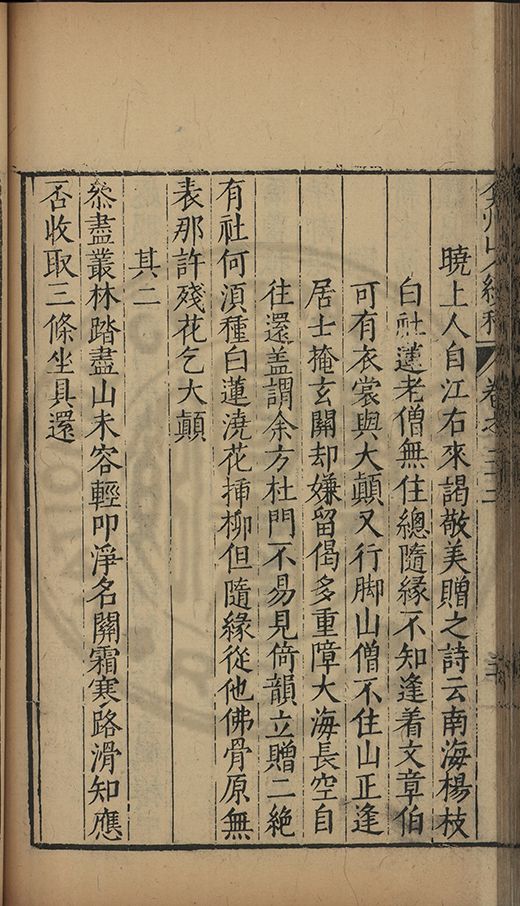 弇州山人續稿 卷之二十二 二十
曉上人自江右來謁敬美贈之詩云南海楊枝
白社蓮老僧無住總隨緣不知逢着文章伯
可有衣裳與大顛又行脚山僧不住山正逢
居士掩玄關却嫌留偈多重障大海長空自
往還盖謂余方杜門不易見倚韻立贈二絶
有社何湏種白蓮澆花揷柳但隨緣從他佛骨原無
表那許殘花乞大顛
其二
叅盡叢林踏盡山未容輕叩淨名關霜寒路滑知應
否收取三條坐具還